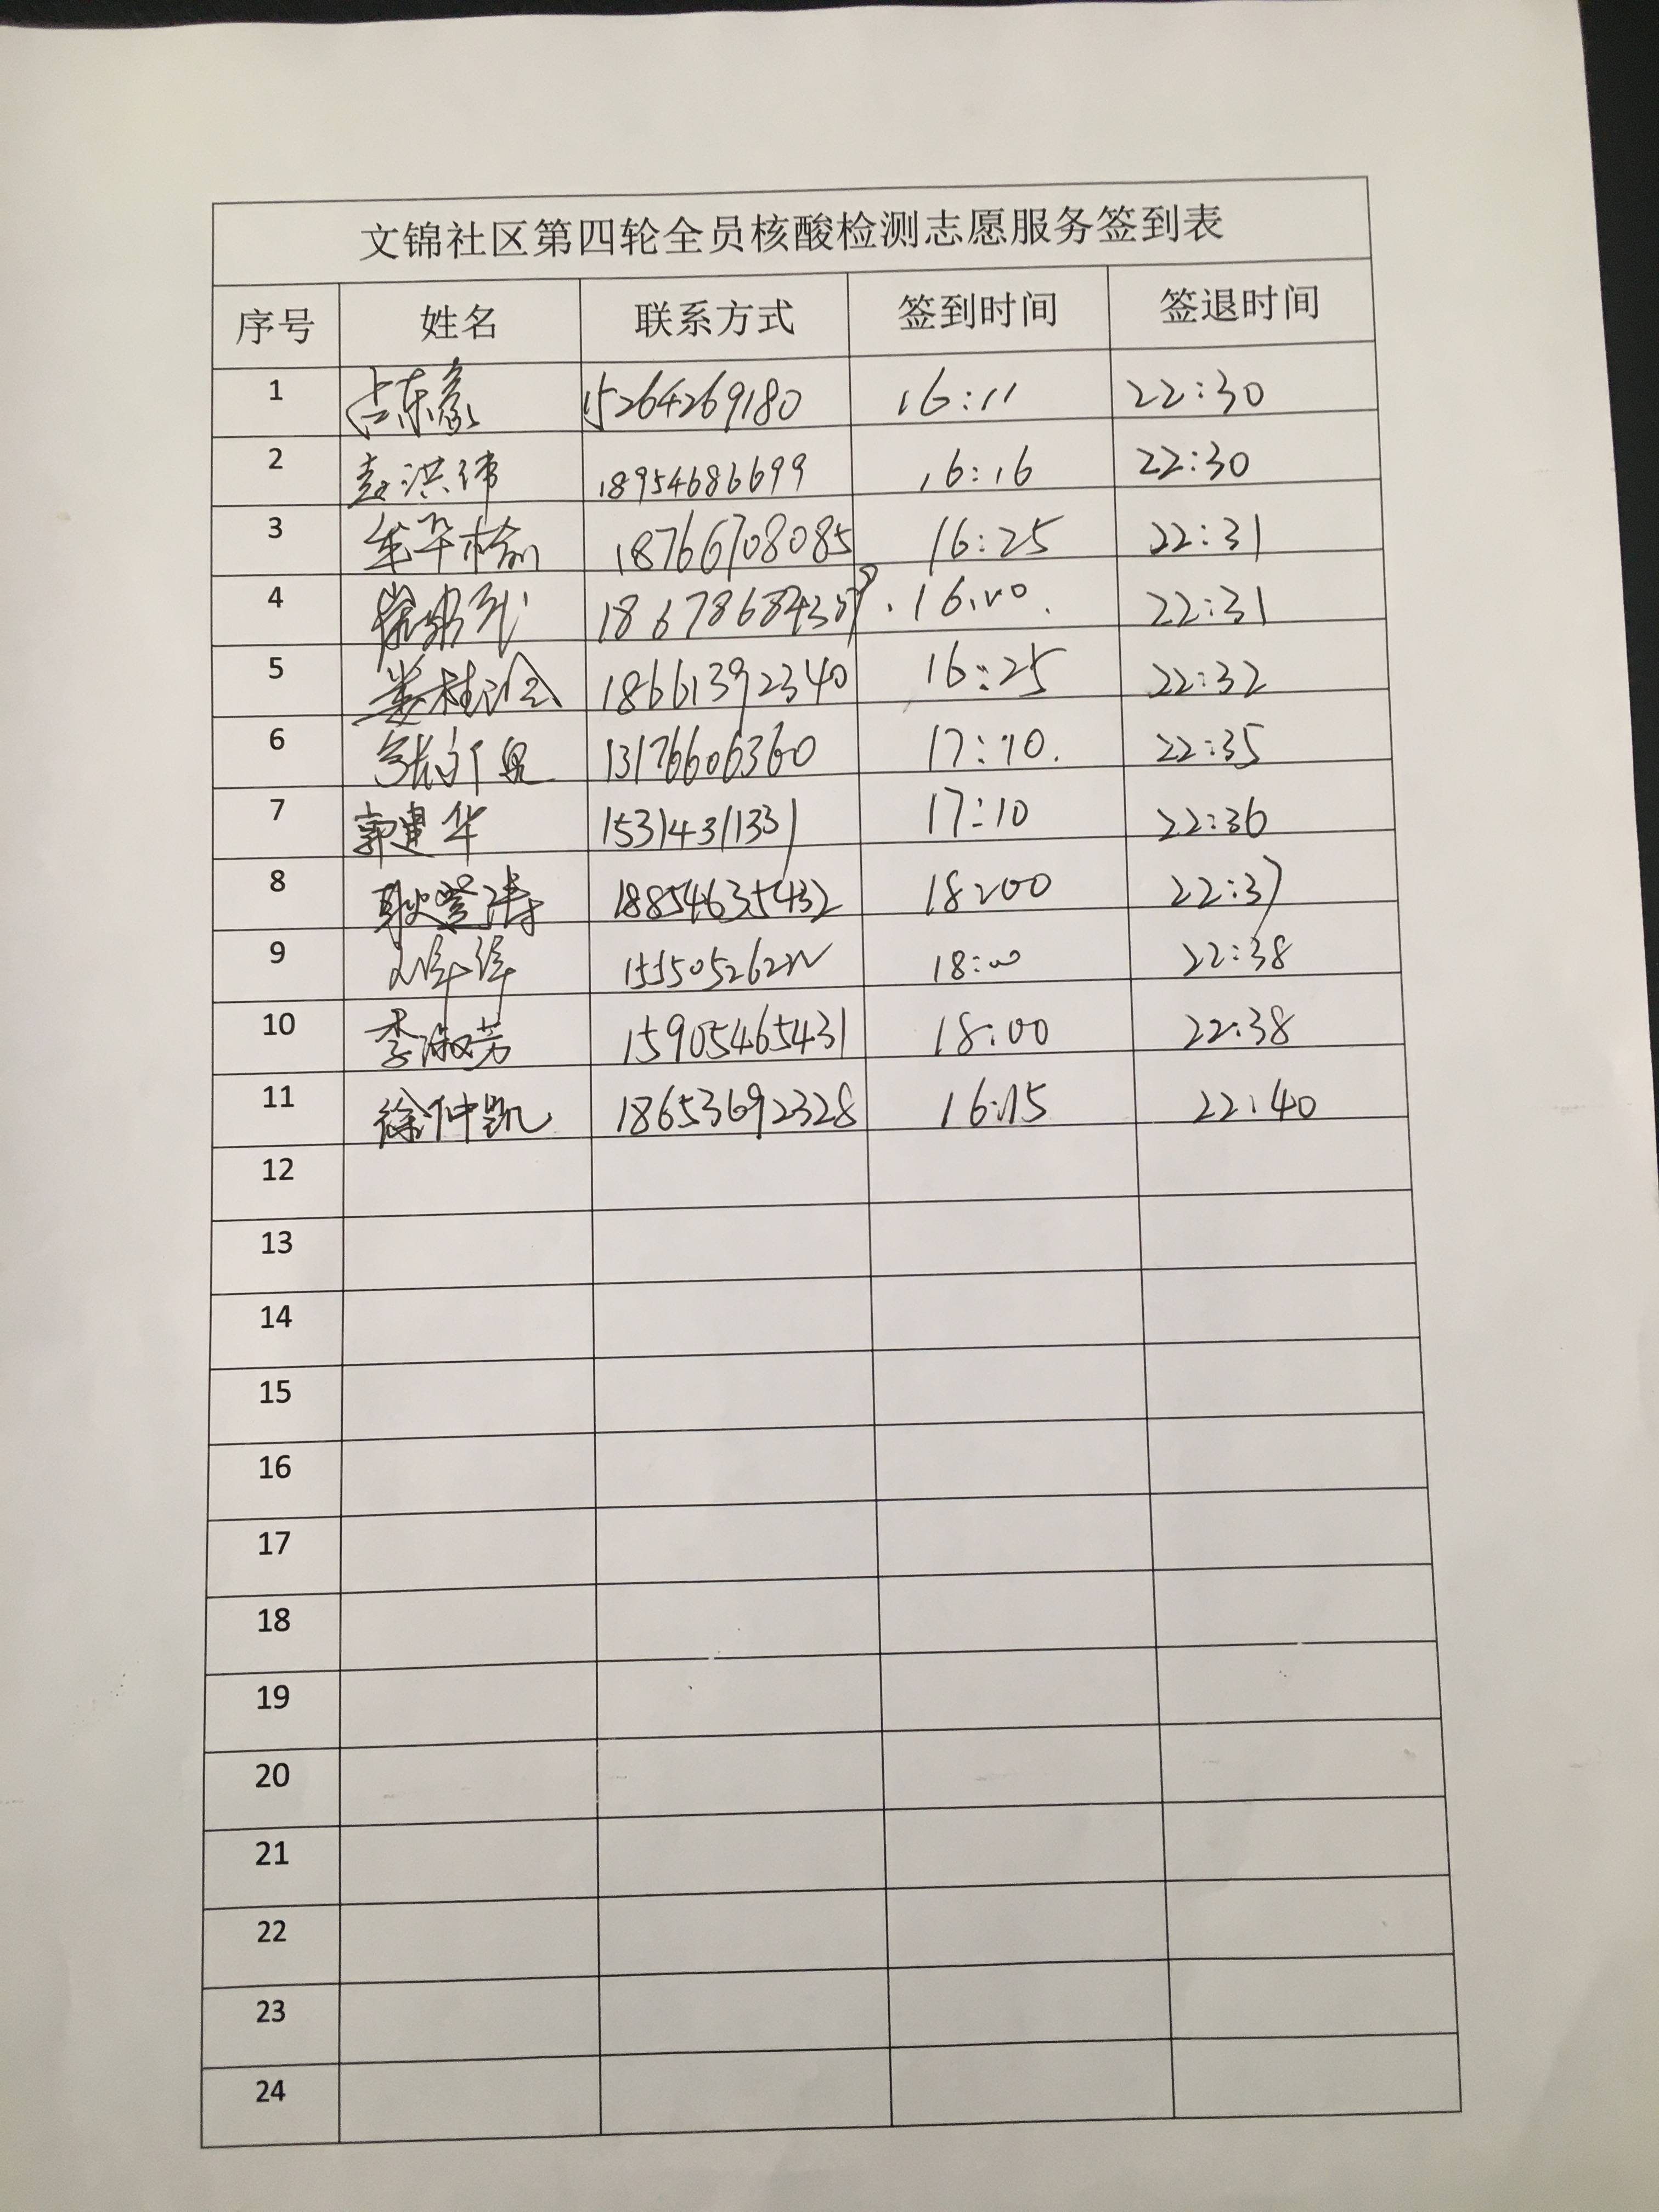 文锦社区第四轮全员核酸检测志愿服务签到表
序号 姓名 联系方式 签到时间 签退时间
1 占东豪 15264269180 16:11 22:30
2 彭洪伟 18954686699 16:16 22:30
3 牟华榆 18766708085 16:25 22:31
4 1867868430 22:31
5 娄桂 18661392340 16:25 22:32
6 13176606360 17:10. 22:35
7 郭建华 15314311331 17:10 22:36
8 耿莹涛 18854635432 18:00 22:37
9 18:00 22:38
10 李淑芳 15905465431 18:00 22:38
11 徐仲凯 18653692328 16:15 22:40
12
13
14
15
16
17
18
19
20
21
22
23
24